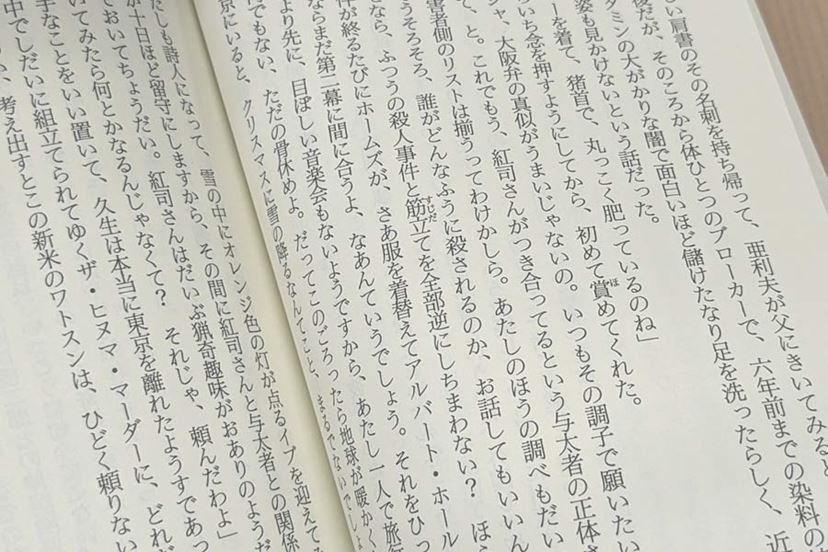 しい肩書のその名刺を持ち帰って、亜利夫が父にきいてみると
後だが、そのころから体ひとつのブローカーで、六年前までの染料の
タミンの大がかりな闇で面白いほど儲けたなり足を洗ったらしく、近
姿も見かけないという話だった。
ーを着て、猪首で、丸っこく肥っているのね」
いち念を押すようにしてから、初めて賞めてくれた。
シャ、大阪弁の真似がうまいじゃないの。いつもその調子で願いたい
て、と。これでもう、紅司さんがつき合ってるという与太者の正体さ
害者側のリストは揃うってわけかしら。あたしのほうの調べもだい
うそろそろ、誰がどんなふうに殺されるのか、お話してもいいん
さなら、ふつうの殺人事件と筋立てを全部逆にしちまわない? ほら
件が終るたびにホームズが、さあ服を着替えてアルバート・ホール
ならまだ第二幕に間に合うよ、なあんていうでしょう。それをひっ
より先に、目ぼしい音楽会もないようですから、あたし一人で旅行
でもない、ただの骨休めよ。だってこのごろったら地球が暖かく
京にいると、クリスマスに雪の降るなんてこと、まるでないでしょ
雪の中にオレンジ色の灯が点るイブを迎えてみ
たしも詩人になって、
が十日ほど留守にしますから、その間に紅司さんと与太者との関係
ておいてちょうだい。紅司さんはだいぶ猟奇趣味がおありのようだ
いてみたら何とかなるんじゃなくて? それじゃ、頼んだわよ」
手なことをいい置いて、久生は本当に東京を離れたようすであっ
中でしだいに組立てられてゆくザ・ヒヌマ・マーダーに、どれだ
考え出すとこの新米のワトスンは、ひどく頼りない